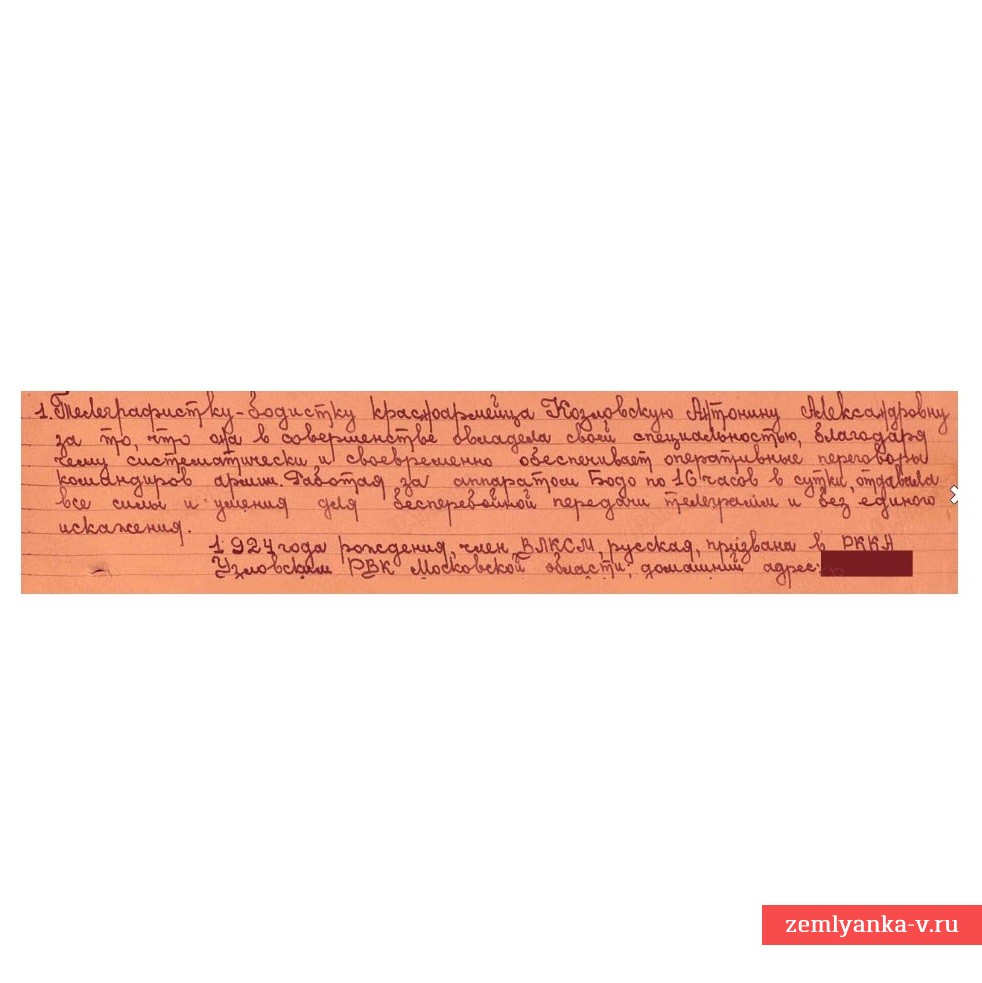 1. Телеграфистку-бодистку красноармейца Козловскую Антонину Александровну
за то, что она в совершенстве овладела своей специальностью, благодаря
чему систематически и своевременно обеспечивает оперативные переговоры
командиров армии. Работая за аппаратом Бодо по 16 часов в сутки, отдавала
все силы и умения для бесперебойной передачи телеграмм и без единого
искажения.
1924 года рождения, член ВЛКСМ, русская, призвана в РККА
Узловским РВК Московской области, домашний адрес:
zemlyanka-v.ru